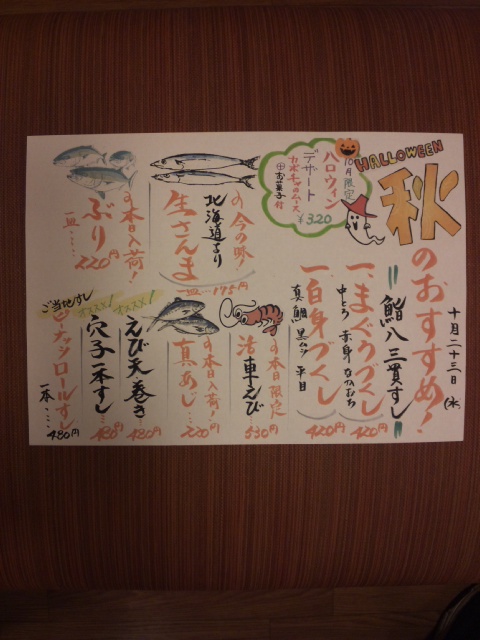 HALLOWEEN
秋のおすすめ!
十月二十三日(水)
10月限定
ハロウィン
デザート
カボチャのムース
¥320
⊕お菓子付
鮨八三貫すし
一、まぐろづくし
中とろ 赤身 なかおち
420円
一、白身づくし
真鯛 黒ムツ 平目
420円
の今の味!
北海道より
生さんま
一皿……175円
の本日入荷!
ぶり
一皿……220円
の本日限定
活車えび
530円
の本日入荷!
真あじ…
220円
オススメ!
えび天巻き…
480円
オススメ!
穴子一本すし…
480円
ご当地すし
ピーナッツロールすし
一本、…480円